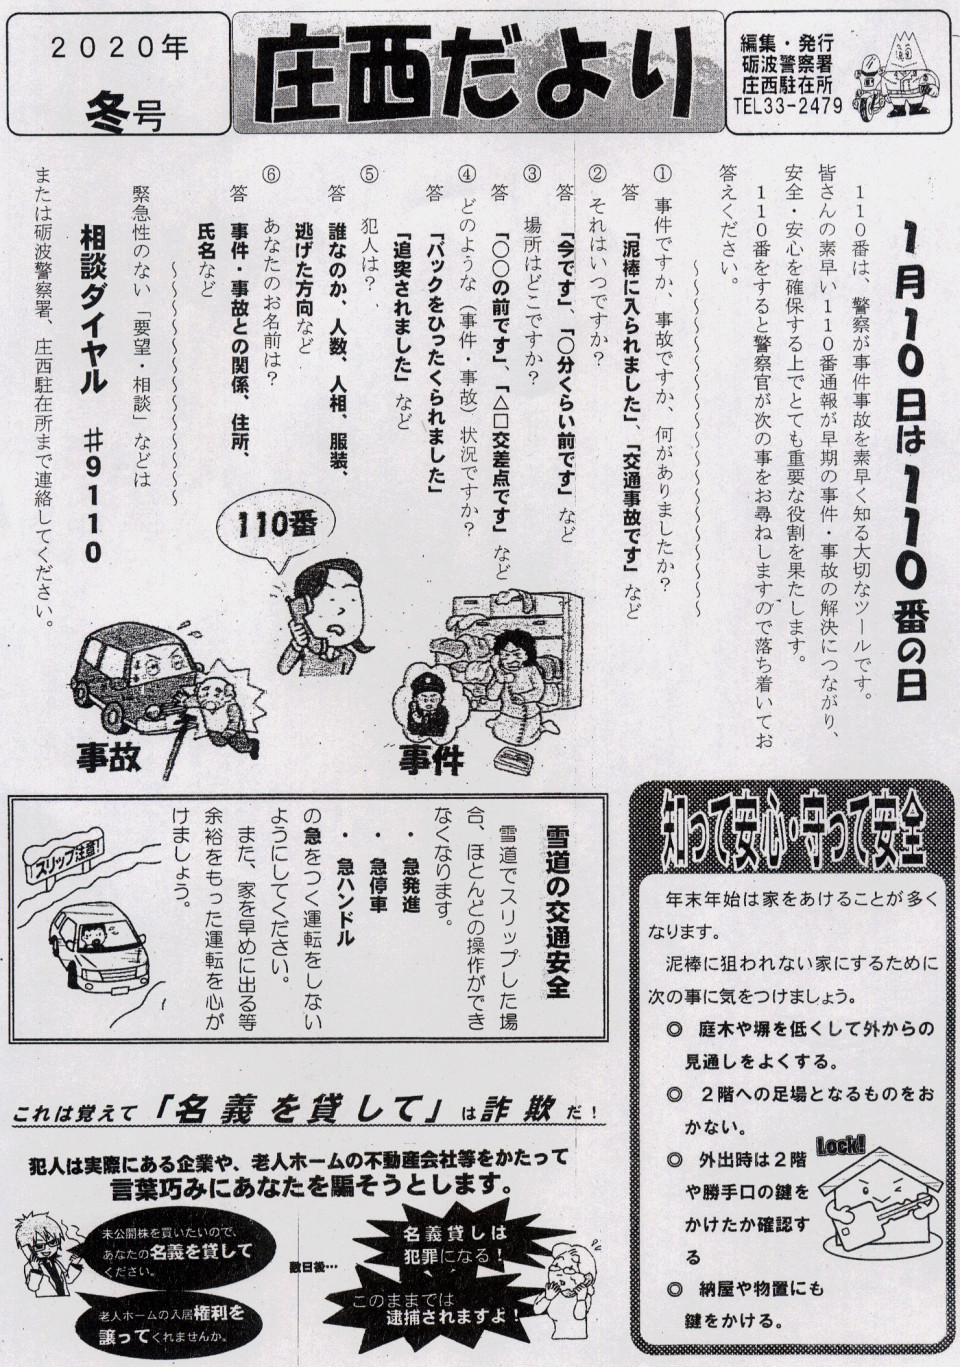 2020年
冬号
庄西だより
編集・発行
砺波警察署
庄西駐在所
TEL33-2479
1月10日は110番の日
110番は、警察が事件事故を素早く知る大切なツールです。
皆さんの素早い110番通報が早期の事件・事故の解決につながり、
安全・安心を確保する上でとても重要な役割を果たします。
110番をすると警察官が次の事をお尋ねしますので落ち着いてお
答えください。
～～～～～～～～～～～～～～～～～～
① 事件ですか、事故ですか、何がありましたか？
答 「泥棒に入られました」、「交通事故です」など
② それはいつですか？
答 「今です」、「〇分くらい前です」など
③ 場所はどこですか？
答 「〇〇の前です」、「△□交差点です」など
④ どのような（事件・事故）状況ですか？
答 「バックをひったくられました」
「追突されました」など
⑤ 犯人は？
答 誰なのか、人数、人相、服装、
逃げた方向など
⑥ あなたのお名前は？
答 事件・事故との関係、住所、
氏名など
～～～～～～～～～～～～
緊急性のない「要望・相談」などは
相談ダイヤル ♯9110
または砺波警察署、庄西駐在所まで連絡してください。
110番
事故
事件
雪道の交通安全
雪道でスリップした場
合、ほとんどの操作ができ
なくなります。
・ 急発進
・ 急停車
・ 急ハンドル
の急をつく運転をしない
ようにしてください。
また、家を早めに出る等
余裕をもった運転を心が
けましょう。
スリップ注意！
知って安心・守って安全
年末年始は家をあけることが多く
なります。
泥棒に狙われない家にするために
次の事に気をつけましょう。
◎ 庭木や塀を低くして外からの
見通しをよくする。
◎ 2階への足場となるものをお
かない。
◎ 外出時は2階
や勝手口の鍵を
かけたか確認す
る
◎ 納屋や物置にも
鍵をかける。
Lock!
これは覚えて「名義を貸して」は詐欺だ！
犯人は実際にある企業や、老人ホームの不動産会社等をかたって
言葉巧みにあなたを騙そうとします。
未公開株を買いたいので、
あなたの名義を貸して
ください。
老人ホームの入居権利を
譲ってくれませんか。
数日後…
名義貸しは
犯罪になる！
このままでは
逮捕されますよ！